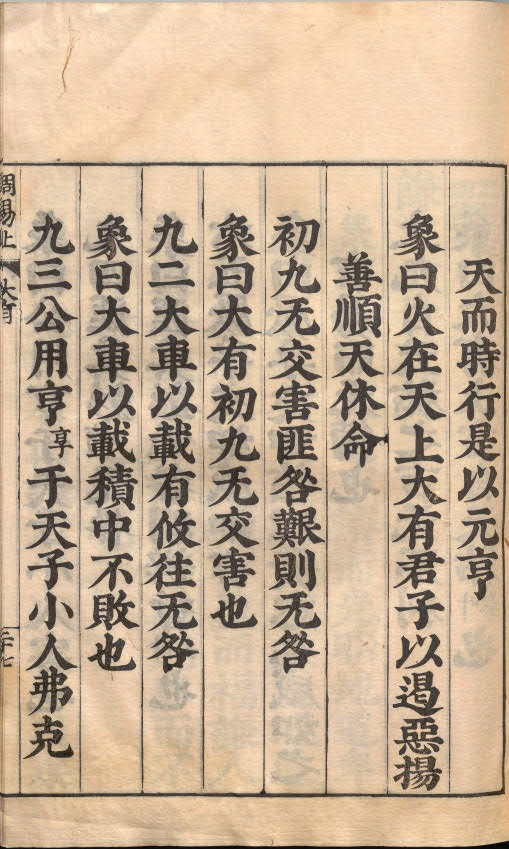 天而時行是以元亨
象曰火在天上大有君子以遏惡揚
善順天休命
初九无交害匪咎艱則无咎
象曰大有初九无交害也
九二大車以載有攸往无咎
象曰大車以載積中不敗也
九三公用亨享于天子小人弗克
周易上 大有
二十七